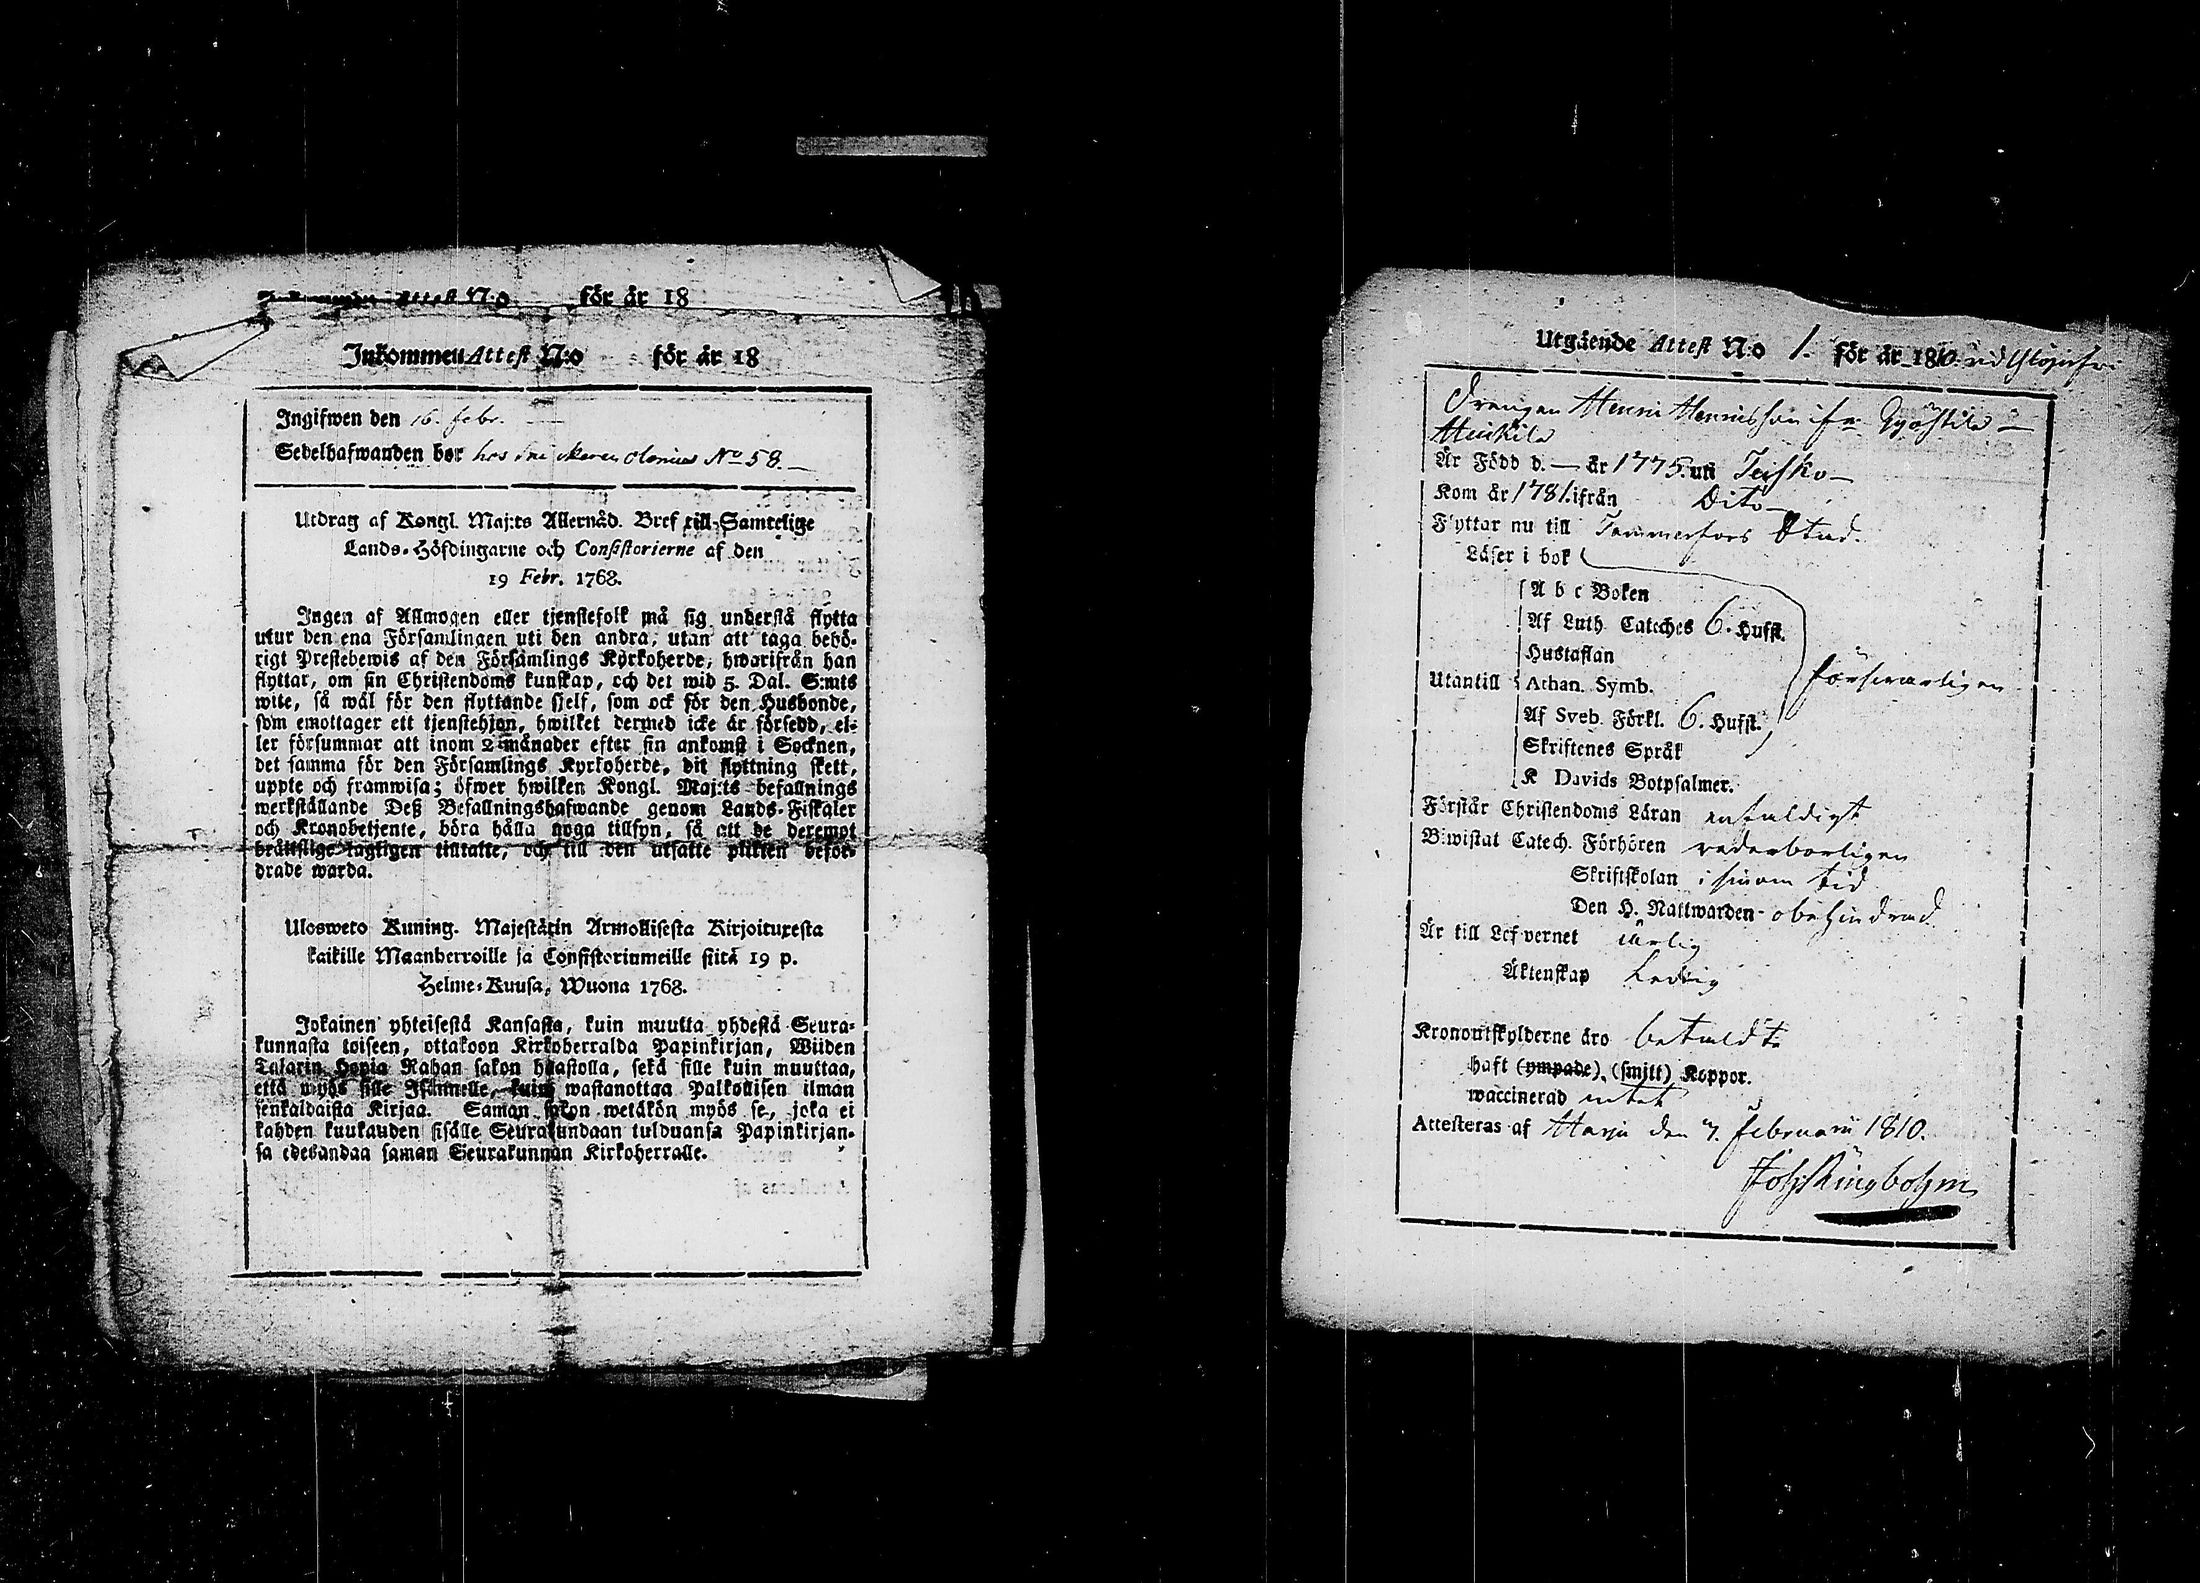 Attest N:o för år 18
Inkommen Attest N:o för år 18
Ingifwen den 16. febr.
Sedelhafwanden bor hos Snickaren Clenius No 58.
Utdrag af Kongl. Maj:ts Allernåd. Bref till Samtelige
Lands-Höfdingarne och Consistorierne af den
19 Febr. 1768.
Ingen af Allmogen eller tjenstefolk må sig understå flytta
utur den ena Församlingen uti den andra, utan att taga behö-
rigt Prestebewis af den Församlings Kyrkoherde, hwarifrån han
flyttar, om sin Christendoms kunskap, och det wid 5. Dal. S:mts
wite, så wäl för den flyttande sjelf, som ock för den Husbonde,
som emottager ett tjenstehjon, hwilket dermed icke är försedd, el-
ler försummar att inom 2 månader efter sin ankomst i Socknen,
det samma för den Församlings Kyrkoherde, dit flyttning skett,
uppte och framwisa; öfwer hwilken Kongl. Maj:ts befallnings
werkställande Deß Befallningshafwande genom Lands-Fiskaler
och Kronobetjente, böra hålla noga tillsyn, så att de deremot
brättslige lagligen tilltalte, och till den utsatte plikten beford-
drade warda.
Ulosweto Kuning. Majestätin Armollisesta Kirjoituxesta
kaikille Maanherroille ja Consistoriumeille siitä 19 p.
Helme-Kuusa, Wuona 1768.
Jokainen yhteisestä Kansasta, kuin muutta yhdestä Seura-
kunnasta toiseen, ottakoon Kirkoherralda Papinkirjan, Wiiden
Talarin Hopia Rahan sakon haastolla, sekä sille kuin muuttaa,
että myös sille Isännelle, kuin wastanottaa Palkollisen ilman
senkaldaista Kirjaa. Saman sakon wetäkön myös se, joka ei
kahden kuukauden sisälle Seurakundaan tulduansa Papinkirjan-
sa edesandaa saman Seurakunnan Kirkoherralle.
Utgående Attest N:o 1. för år 1810.
Drengen Henric Henricsson fr.
Heikilä
Är Född d. — år 1775. uti Teisko
Kom år 1781. ifrån Dito
Flyttar nu till Tammerfors Stad.
Läser i bok
A b c Boken
Af Luth. Cateches 6. Hufst.
Hustaflan
Utantill Athan. Symb. försvarligen
Af Sveb. Förkl. 6. Hufst.
Skriftenes Språk
K Davids Botpsalmer.
Förstår Christendoms Läran enfaldigt
Biwistat Catech. Förhören vederborligen
Skriftskolan i sinom tid
Den H. Nattwarden obehindrad
Är till Lefvernet ärlig
Äktenskap Ledig
Kronoutskylderne äro betaldt
haft (ympade), (smitt) Koppor.
waccinerad
Attesteras af Harju den 7. Februarii 1810.
Joh: Ringbohm